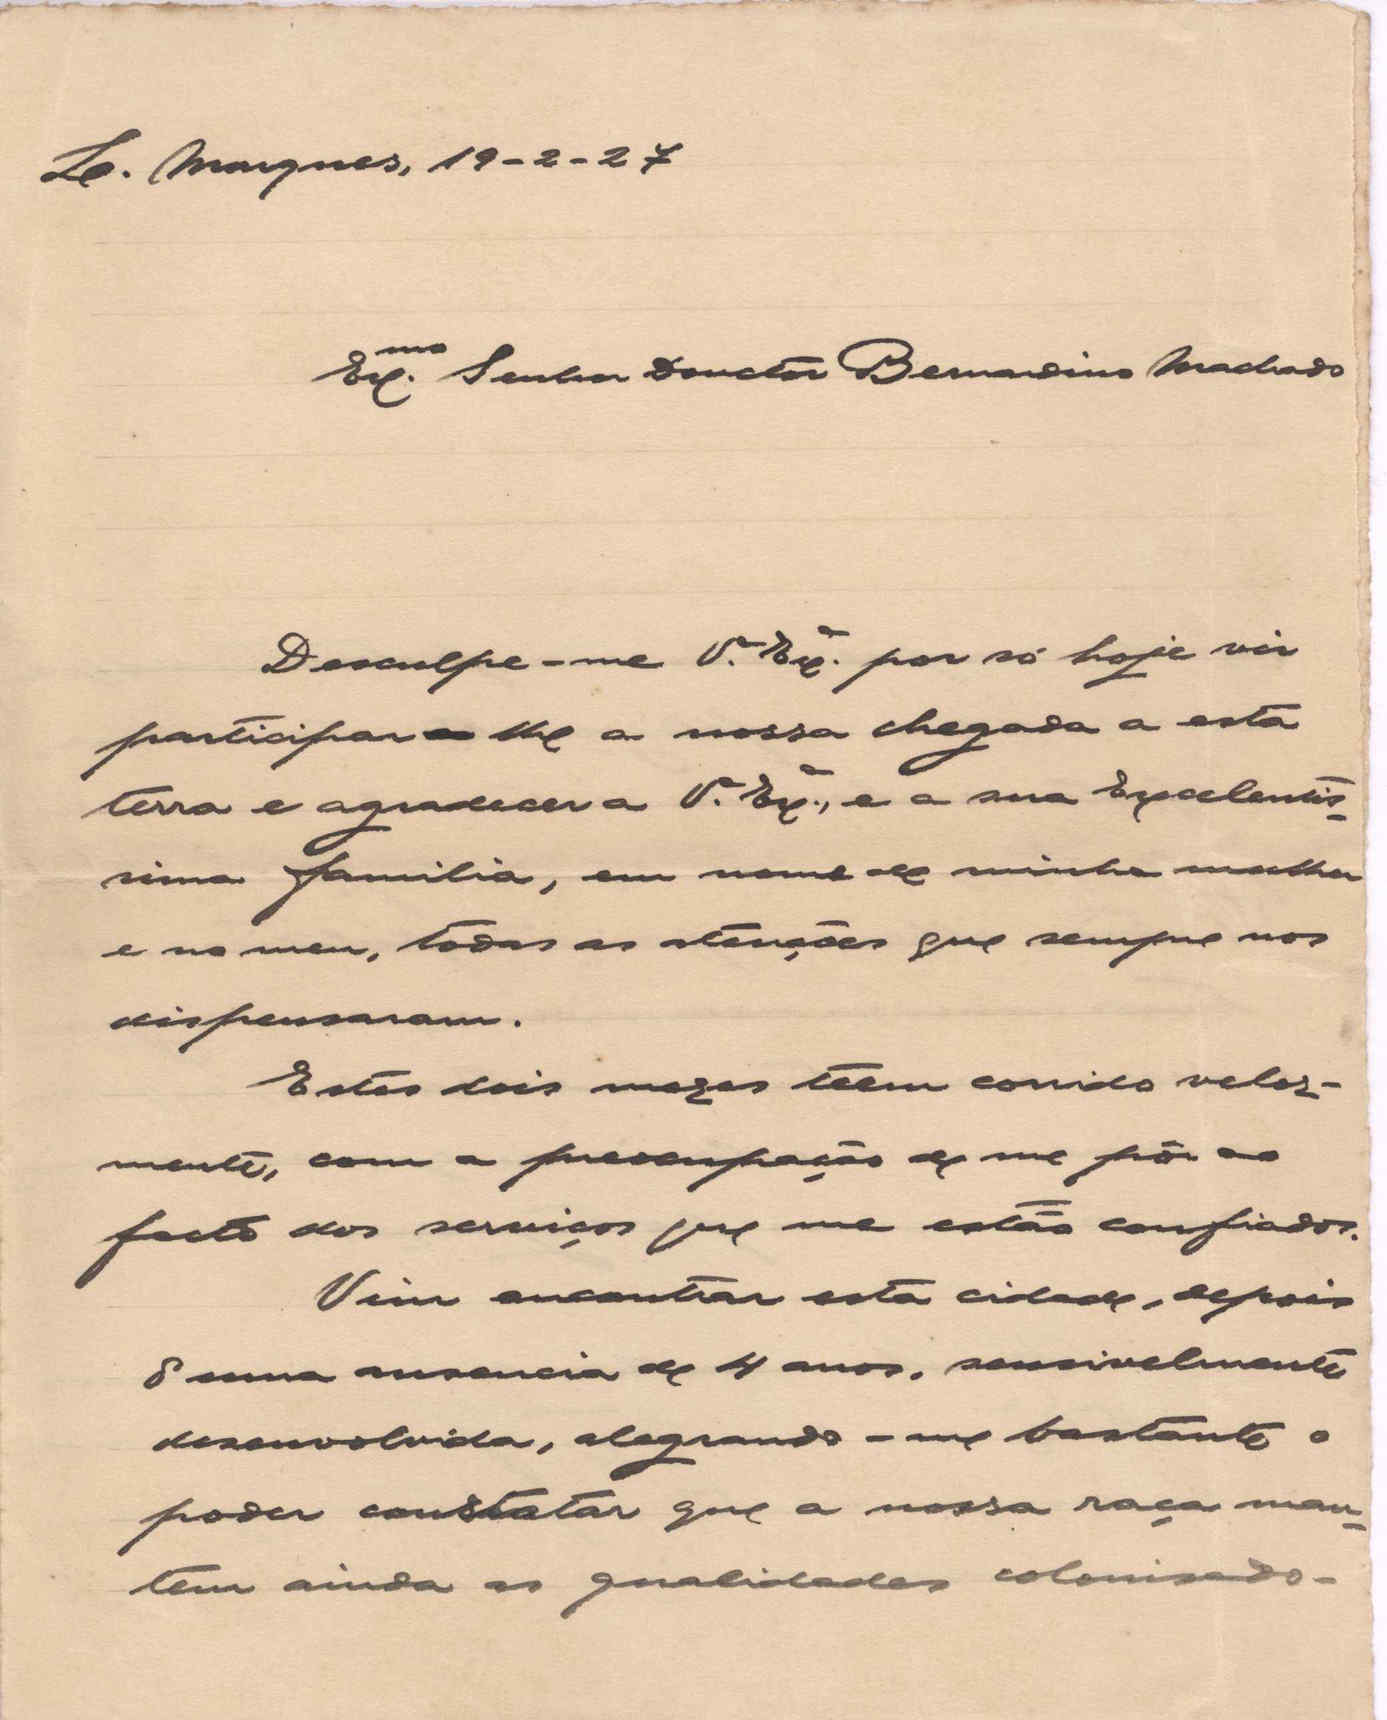 L. Marques, 19-2-27
Ex.mo Senhor Douctor Bernardino Machado
Desculpe-me V.ª Ex.ª por só hoje vir
participar-lhe a nossa chegada a esta
terra e agradecer a V.ª Ex.ª, e a sua Excelentis-
sima familia, em nome de minha mulher
e no meu, todas as atenções que sempre nos
dispensaram.
Estes dois mezes teem corrido veloz-
mente, com a preocupação de me pôr ao
facto dos serviços que me estão confiados.
Vim encontrar esta cidade, depois
d'uma ausencia de 4 anos, sensivelmente
desenvolvida, alegrando-me bastante o
poder constatar que a nossa raça man-
tem ainda as qualidades colonisado-